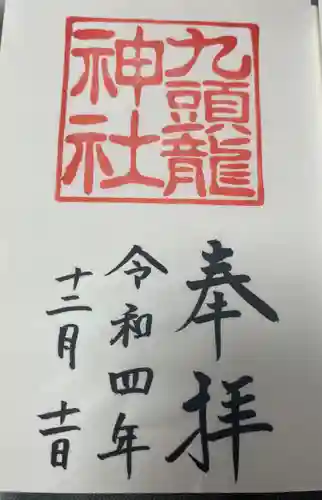 九頭龍
神社
奉拝
令和四年
十二月
十一日